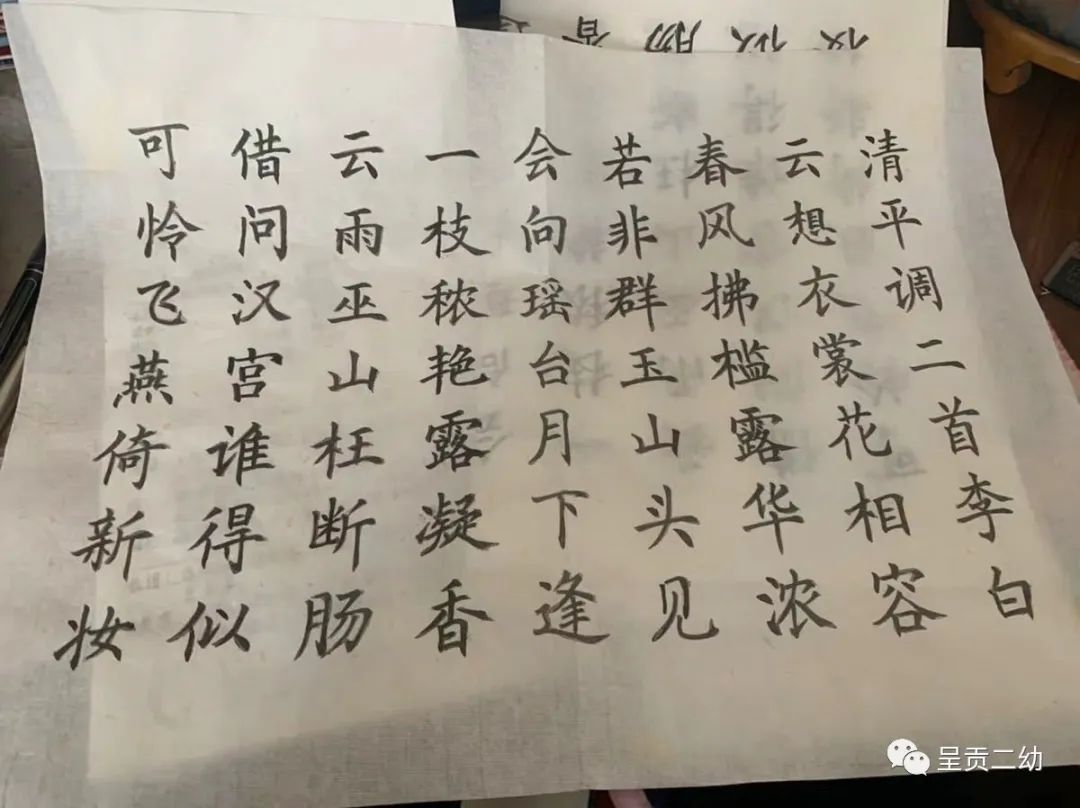 清平调二首李白
云想衣裳花相容
春风拂槛露华浓
若非群玉山头见
会向瑶台月下逢
一枝秾艳露凝香
云雨巫山枉断肠
借问汉宫谁得似
可怜飞燕倚新妆
香肠似妆
呈贡二幼